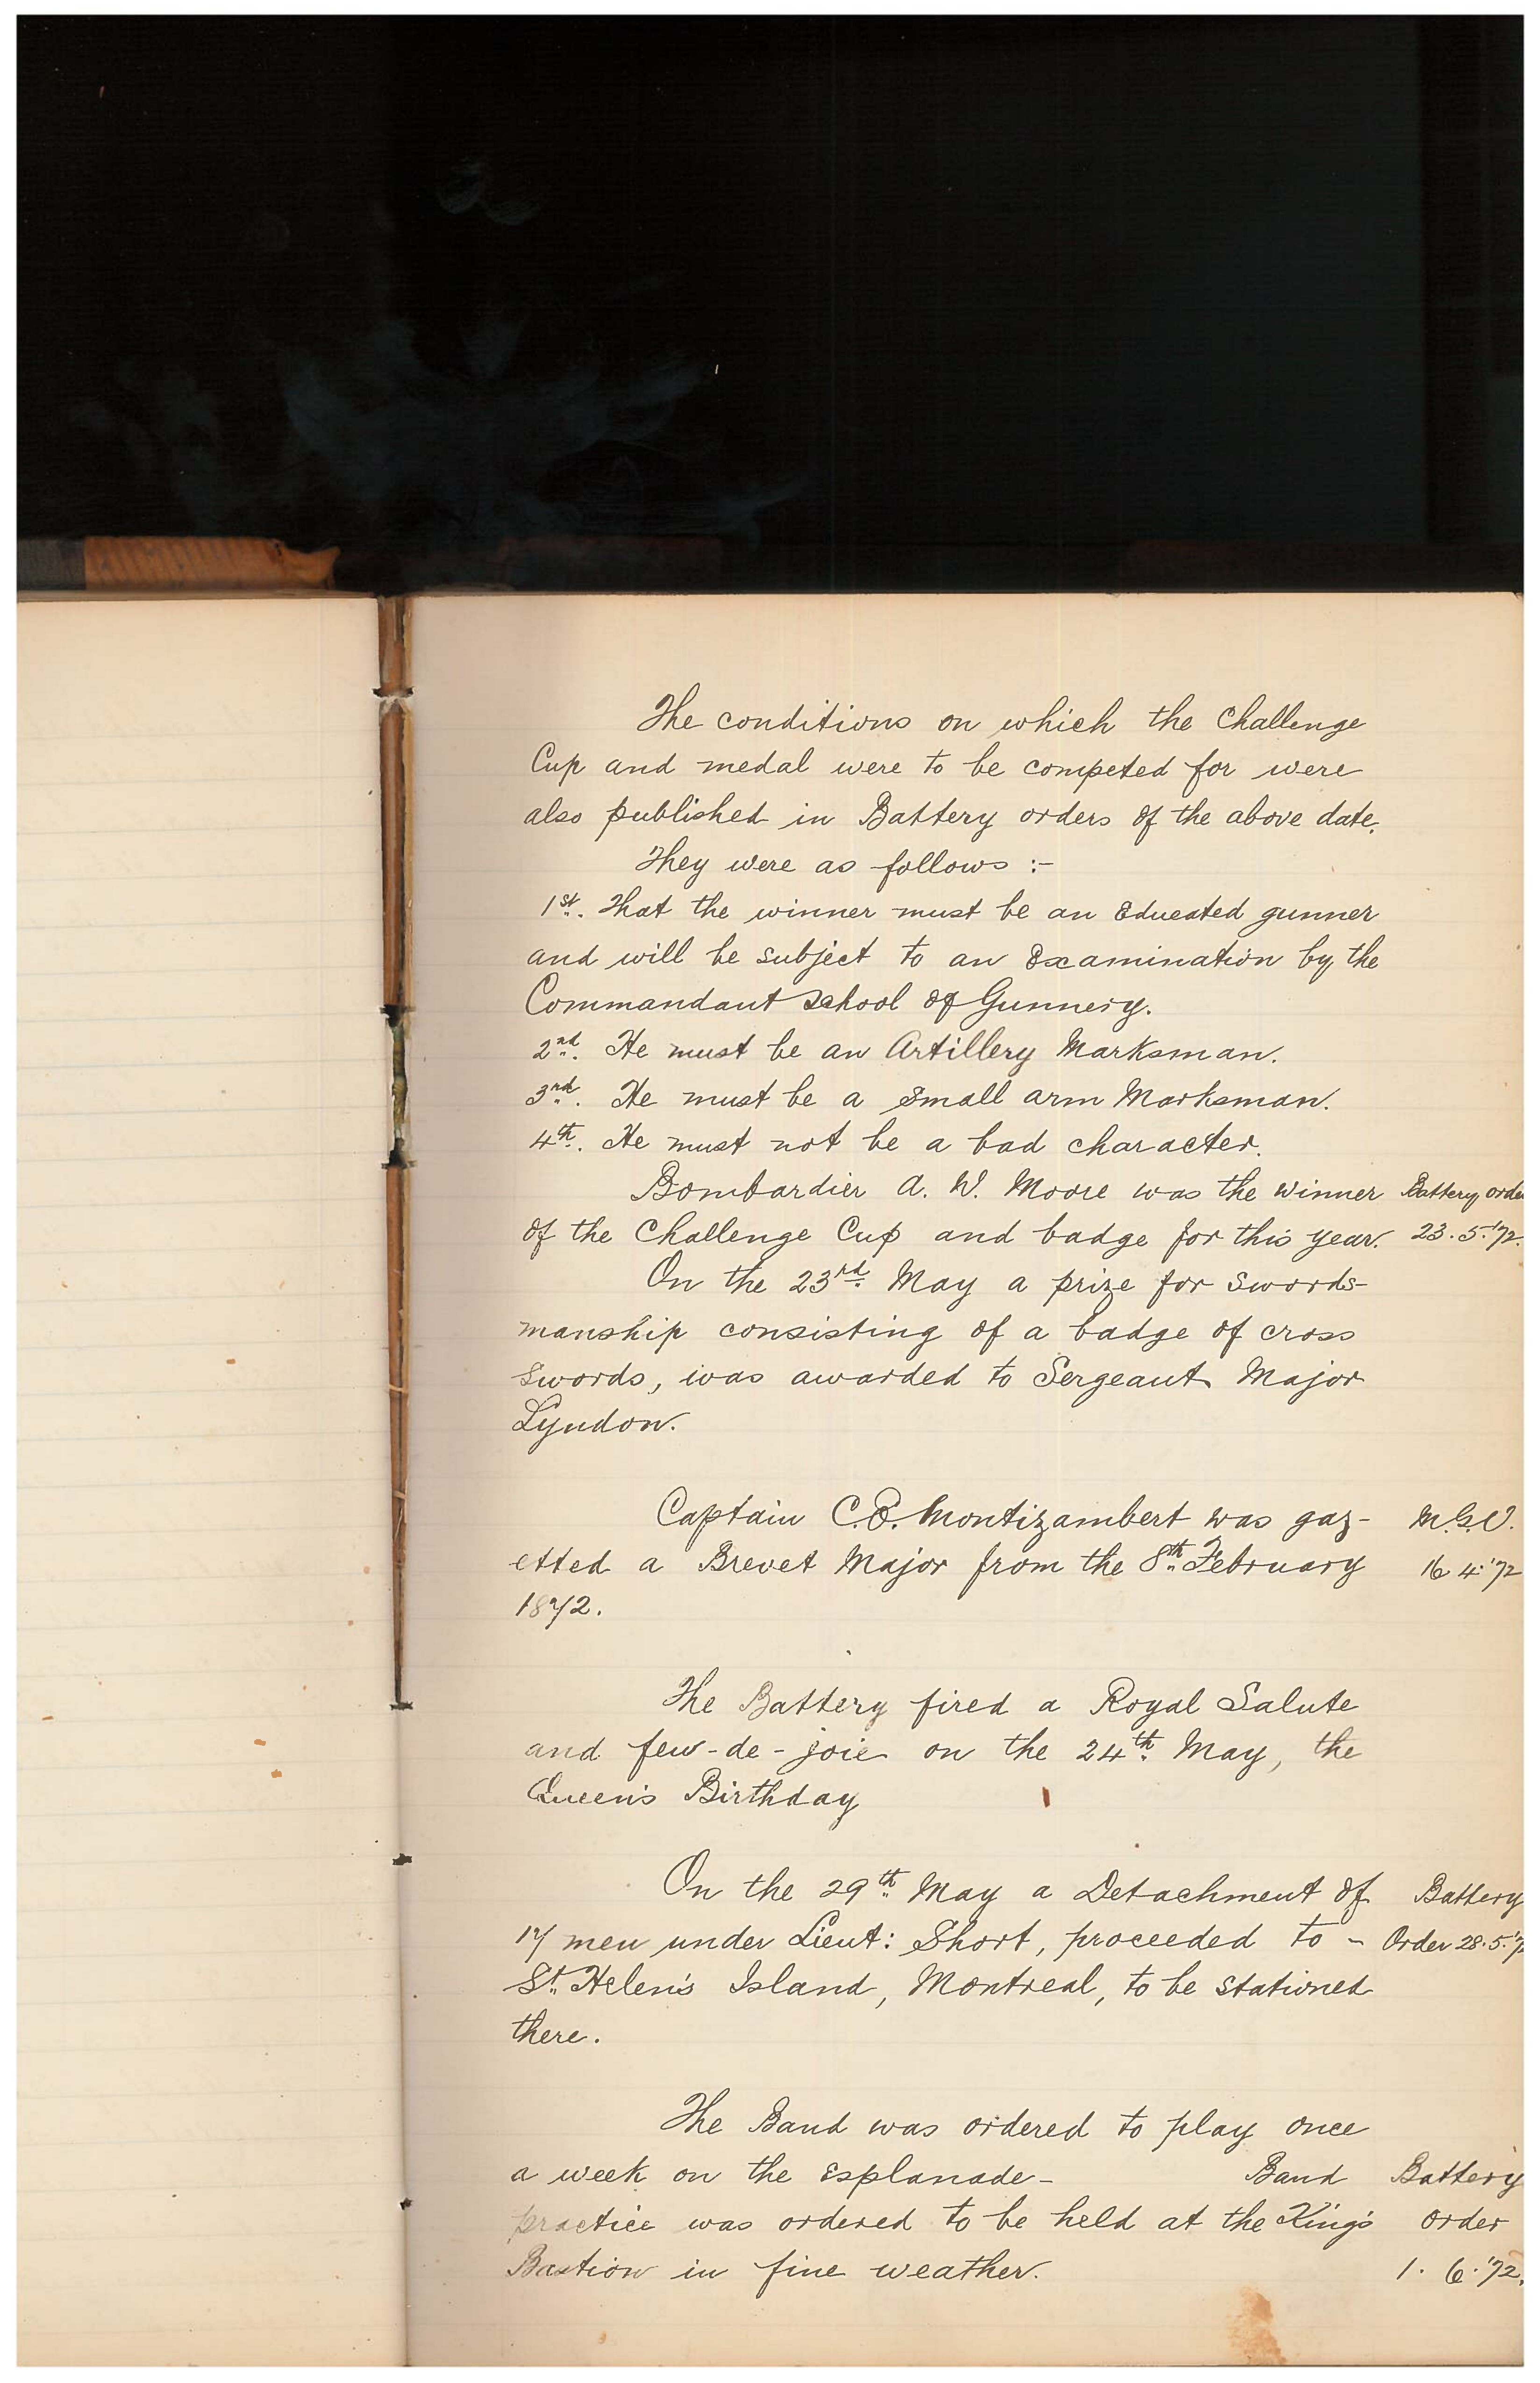 The conditions on which the Challenge
Cup and medal were to be competed for were
also published in Battery orders of the above date.
They were as follows :-
1st. That the winner must be an Educated gunner
and will be subject to an Examination by the
Commandant School of Gunnery.
2nd. He must be an Artillery Marksman.
3rd. He must be a Small arm Marksman.
4th. He must not be a bad character.
Bombardier A. W. Moore was the winner Battery order
of the Challenge Cup and badge for this year. 23.5.'72.
On the 23rd. May a prize for swords-
manship consisting of a badge of cross
swords, was awarded to Sergeant Major
Lyndon.
Captain C.E. Montizambert was gaz- M.G.O.
etted a Brevet Major from the 8th February 16 4.'72
1872.
The Battery fired a Royal Salute
and few-de-joie on the 24th. May, the
Queen's Birthday
On the 29th. May a Detachment of Battery
17 men under Lieut: Short, proceeded to - Order 28.5.'7
St. Helen's Island, Montreal, to be stationed
there.
The Band was ordered to play once
a week on the Esplanade- Band Battery
practice was ordered to be held at the King's order
Bastion in fine weather. 1. 6.'72.